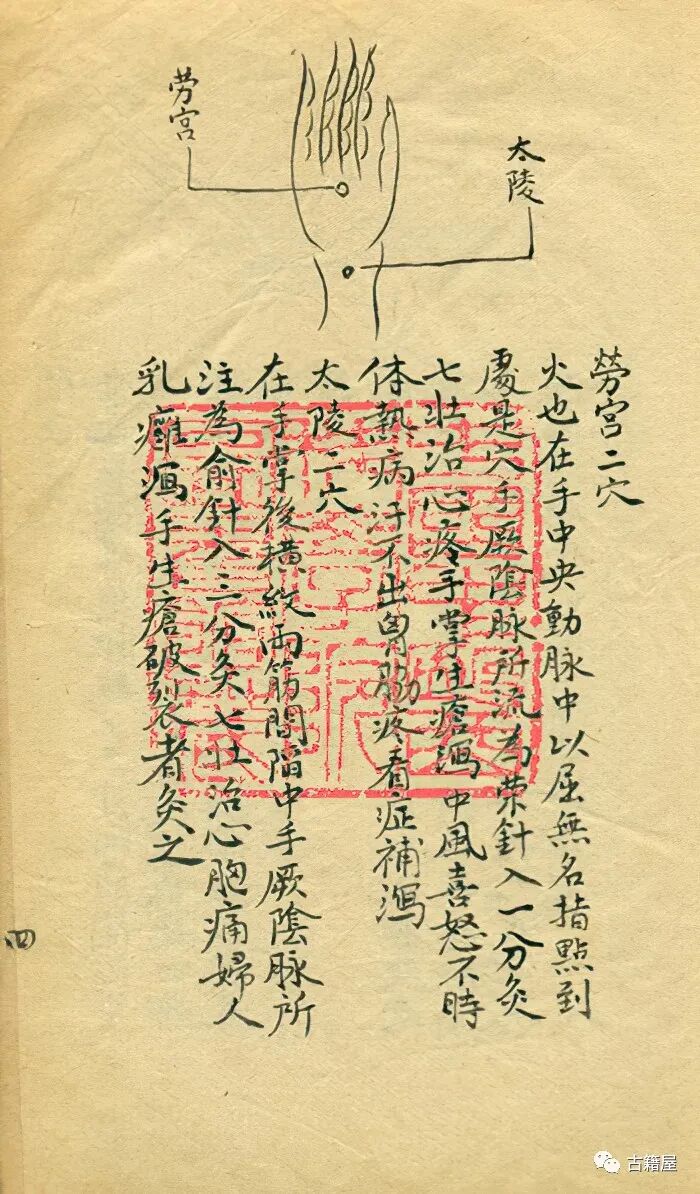 劳宫
太陵
勞宫二穴
火也在手中央動脉中以屈無名指點到
處是穴手厥陰脉所流為荣針入一分灸
七壮治心疼手掌生瘡瀉中風喜怒不時
体熱病汗不出胷脇疼看症補瀉
太陵二穴
在手掌後横紋两筋間陷中手厥陰脉所
注為俞針入三分灸七壮治心胞痛婦人
乳癰瀉手生瘡破裂者灸之
四
古籍屋